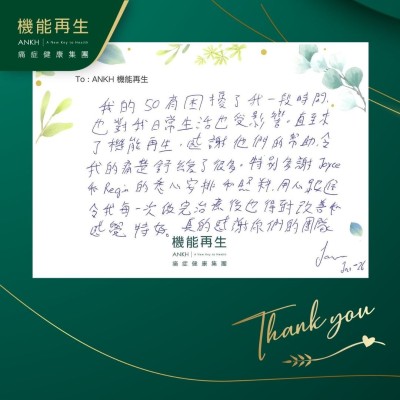 機能再生
ANKH | A New Key to Health
癌症健康集團
To : ANKH 機能再生
我的50肩困擾了我一段時間
也對我日常生活也受影響。直至來
了機能再生,感謝他們的幫助,令
我的痛楚舒緩了很多。特別多謝Joyce
和Regin的悉心安排和照料,用心跟進
令我每一次做完治療後也得到改善和
感覺特好。真的感謝你們的團隊
機能再生
ANKH | A New Key to Health
癌症健康集團
Jan-26
Thank you